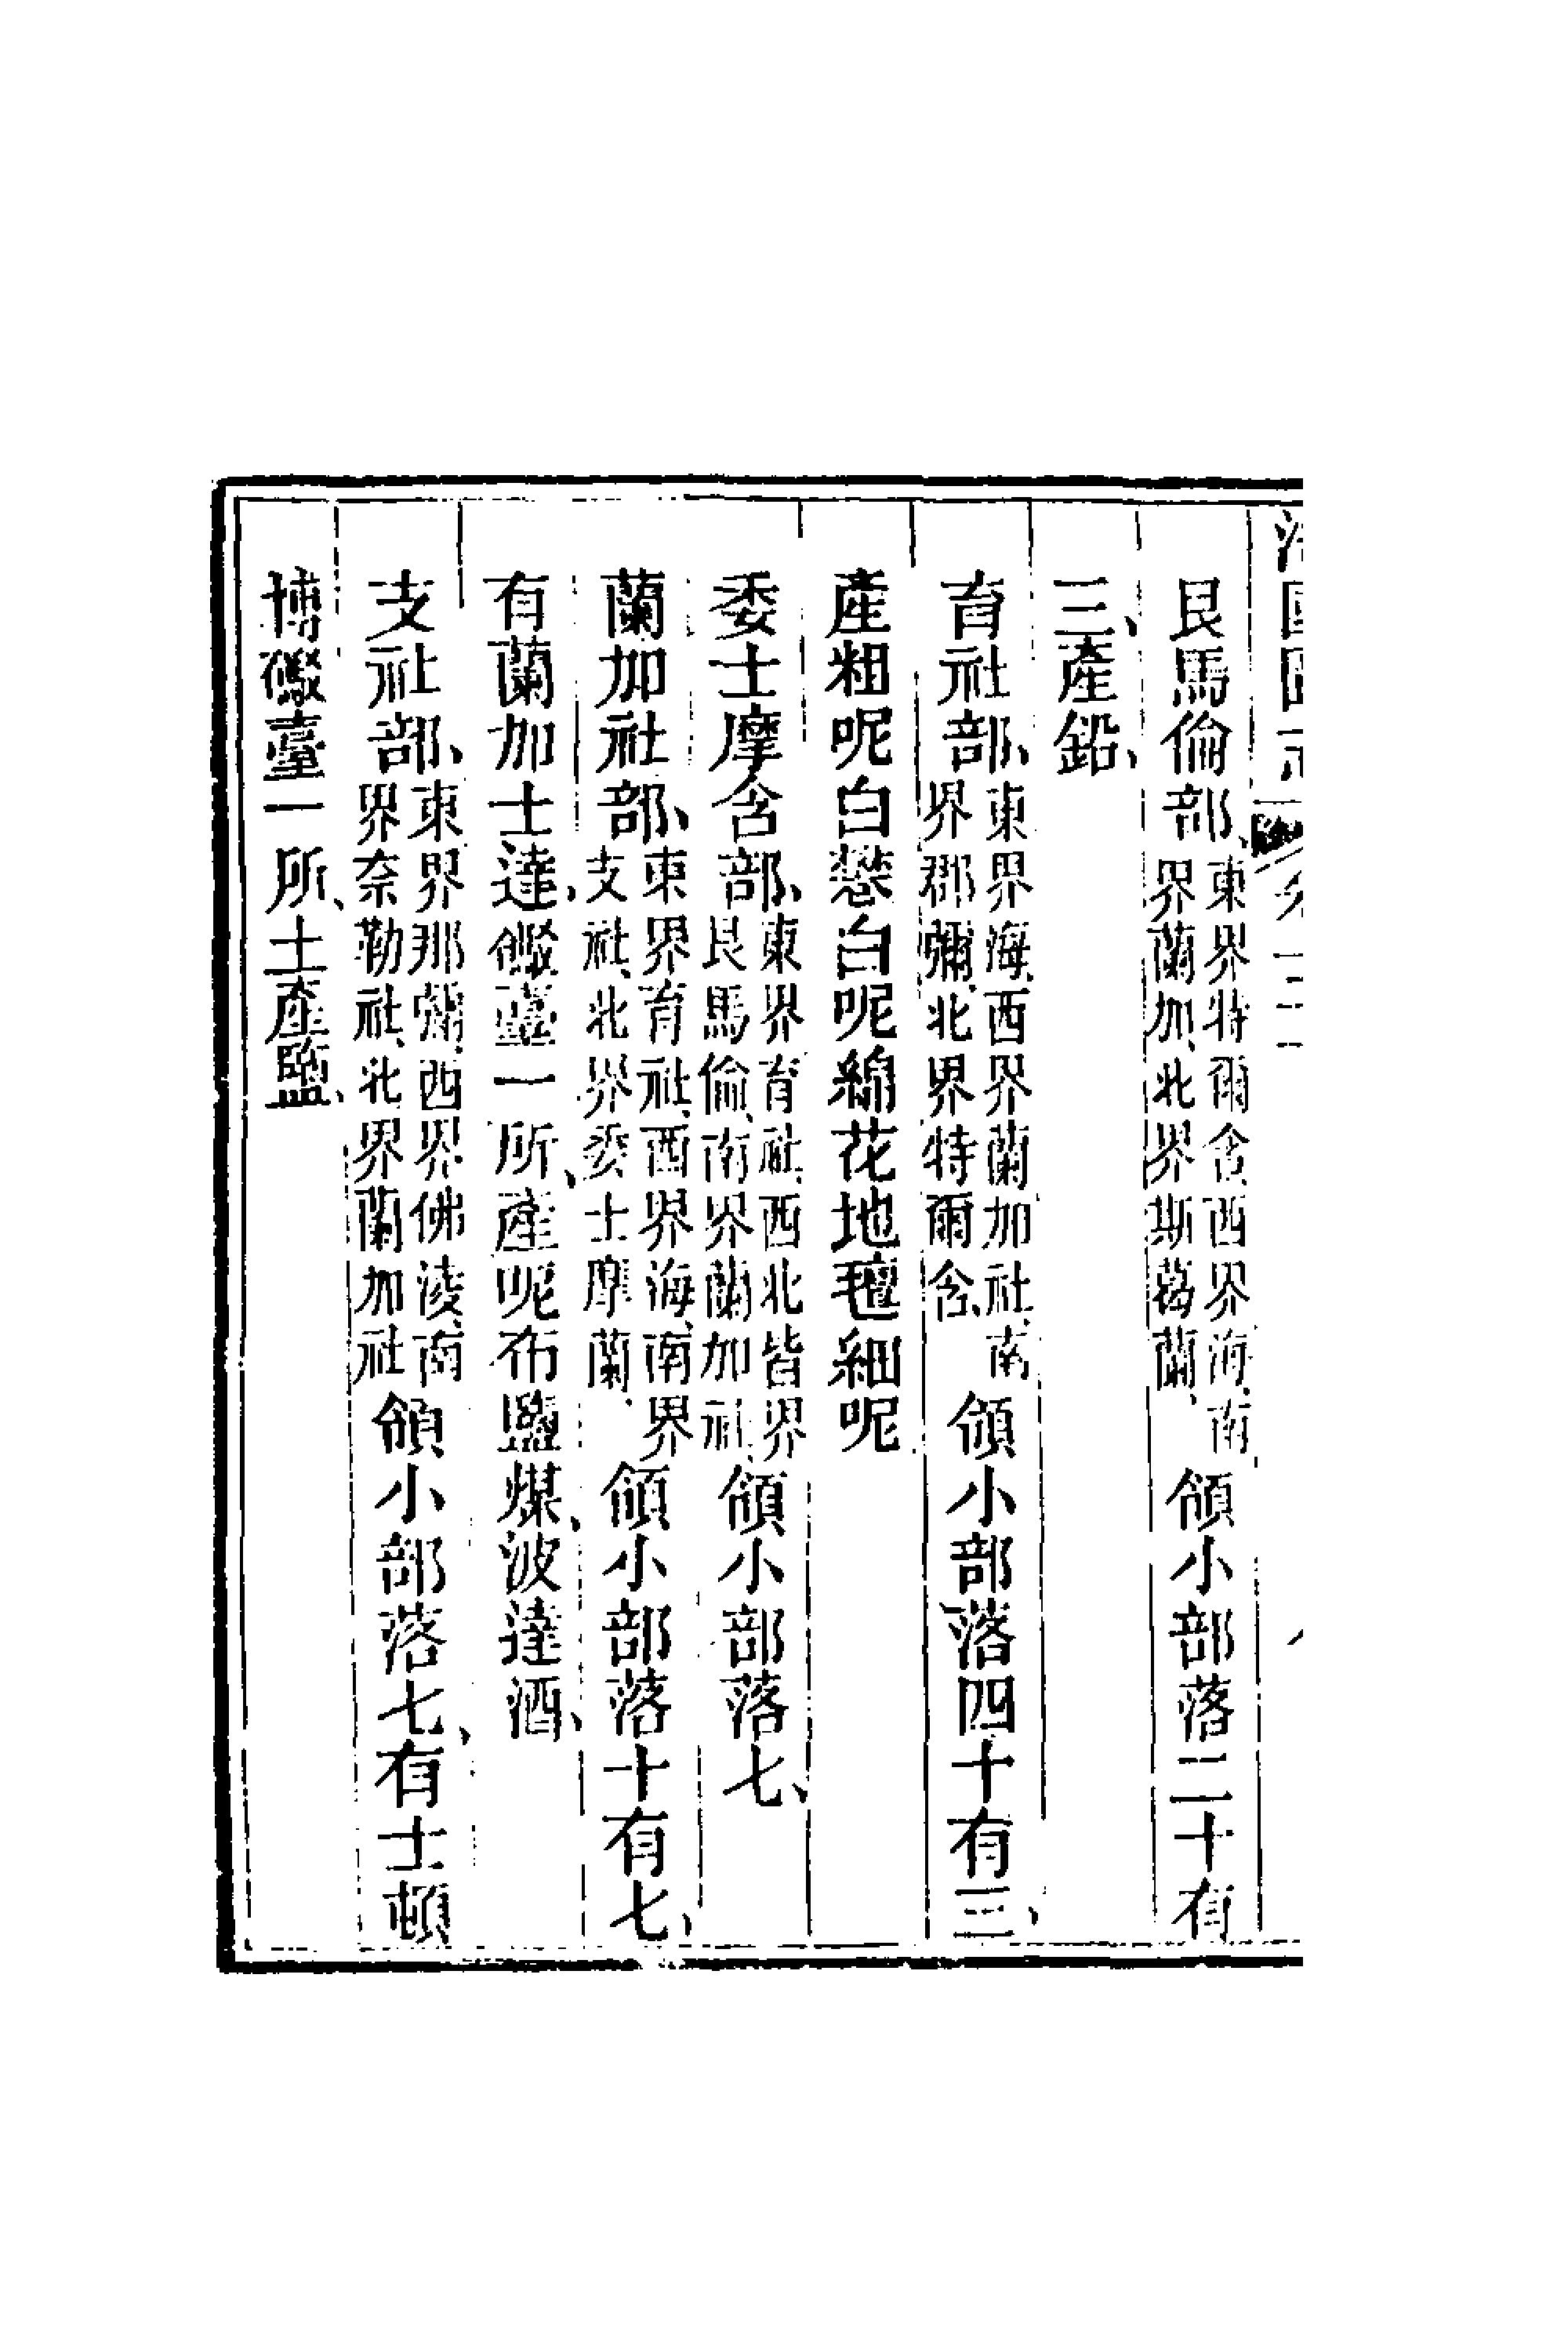 艮馬倫部、東界特爾含、西界海、南界蘭加、北界斯葛蘭、領小部落二十有
三、產鉛、
育社部、東界海、西界蘭加社、南界郡彌、北界特爾含、領小部落四十有三、
產粗呢白白呢綿花地氊細呢
委士摩含部、東界育社、西北皆界艮馬倫、南界蘭加社、領小部落七、
蘭加社部、東界育社、西界海、南界支社、北界委士摩蘭、領小部落十有七、
有蘭加士達、礮臺一所、產呢布鹽煤、波達酒、
支社部、東界那彌、西界佛淩、南界奈勒社、北界蘭加社領小部落七、有士頓
博礮臺一所、土產鹽、